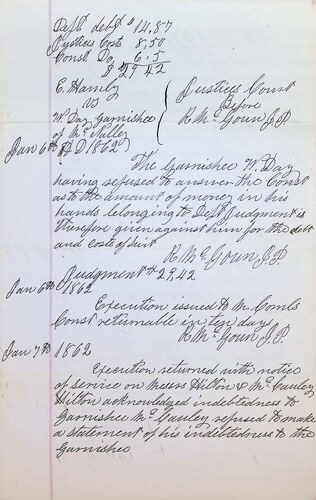 Deft debt $14.87
Justices Costs 8,50
Const Do 6.5
$29 42
E. Hamly Justices Court
vs Before
W. Day Garnishee R McGoun J.P.
of Mc Culley
Jan 6th A D 1862
The Garnishee W. Day
having refused to answer the Const
as to the amount of money in his
hands belonging to Deft Judgment is
therefore given against him for the debt
and costs of suit
R. McGoun J.P.
Judgment $29,42
Jan 6th 1862
Execution issued to M. Combs
Const returnable in ten days
R. McGoun J.P.
Jan 7th 1862
Execution returned with notice
of service on Messrs Hilton & McCauley
Hilton acknowledged indebtedness to
Garnishee McCauley refused to make
a statement of his indebtedness to the
Garnishee